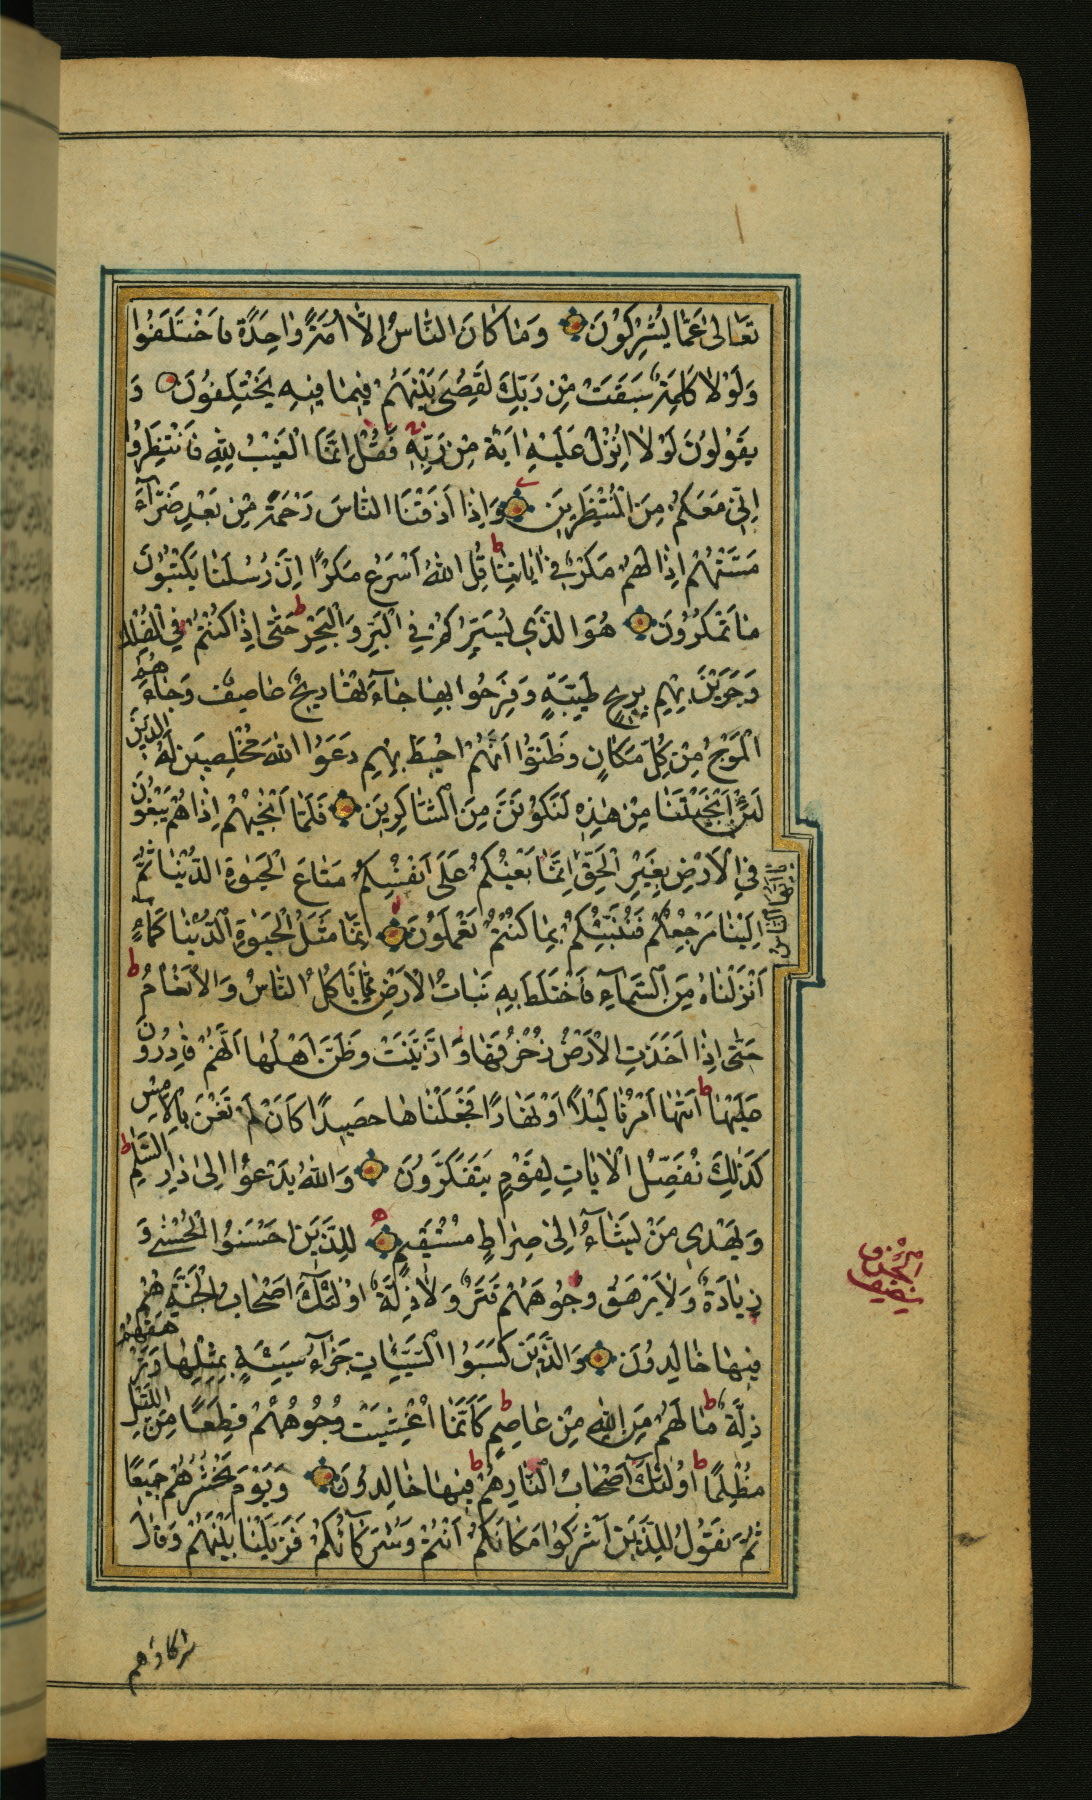 تَعَالىٰ عَمَّا يُشْرِكُونَ وَمَا كَانَ النَّاسُ اِلَّا اُمَّةً وَاحِدَةً فَاخْتَلَفُوا
وَلَوْلَا كَلِمَةٌ سَبَقَتْ مِنْ رَبِّكَ لَقُضِىَ بَيْنَهُمْ فِيمَا فِيهِ يَخْتَلِفُونَ وَ
يَقُولُونَ لَوْلَا اُنْزِلَ عَلَيْهِ اٰيَةٌ مِنْ رَبِّهِ فَقُلْ اِنَّمَا الْغَيْبُ لِلّٰهِ فَانْتَظِرُوا
اِنّى مَعَكُمْ مِنَ الْمُنْتَظِرِينَ وَاِذَا اَذَقْنَا النَّاسَ رَحْمَةً مِنْ بَعْدِ ضَرَّآءَ
مَسَّتْهُمْ اِذَا لَهُمْ مَكْرٌ فِى اٰيَاتِنَا قُلِ اللّٰهُ اَسْرَعُ مَكْرًا اِنَّ رُسُلَنَا يَكْتُبُونَ
مَا تَمْكُرُونَ هُوَ الَّذِى يُسَيِّرُكُمْ فِى الْبَرِّ وَالْبَحْرِ حَتّٰى اِذَا كُنْتُمْ فِى الْفُلْكِ
وَجَرَيْنَ بِهِمْ بِرِيحٍ طَيِّبَةٍ وَفَرِحُوا بِهَا جَآءَتْهَا رِيحٌ عَاصِفٌ وَجَآءَهُمُ
الْمَوْجُ مِنْ كُلِّ مَكَانٍ وَظَنُّوا اَنَّهُمْ اُحِيطَ بِهِمْ دَعَوُا اللّٰهَ مُخْلِصِينَ لَهُ الدِّينَ
لَئِنْ اَنْجَيْتَنَا مِنْ هٰذِهِ لَنَكُونَنَّ مِنَ الشَّاكِرِينَ فَلَمَّا اَنْجٰيهُمْ اِذَا هُمْ يَبْغُونَ
فِى الْاَرْضِ بِغَيْرِ الْحَقِّ اِنَّمَا بَغْيُكُمْ عَلَى اَنْفُسِكُمْ مَتَاعَ الْحَيٰوةِ الدُّنْيَا ثُمَّ
يَا اَيُّهَا النَّاسُ
اِلَيْنَا مَرْجِعُكُمْ فَنُنَبِّئُكُمْ بِمَا كُنْتُمْ تَعْمَلُونَ اِنَّمَا مَثَلُ الْحَيٰوةِ الدُّنْيَا كَمَآءٍ
اَنْزَلْنَاهُ مِنَ السَّمَآءِ فَاخْتَلَطَ بِهِ نَبَاتُ الْاَرْضِ مِمَّا يَاْكُلُ النَّاسُ وَالْاَنْعَامُ
حَتّٰى اِذَا اَخَذَتِ الْاَرْضُ زُخْرُفَهَا وَازَّيَّنَتْ وَظَنَّ اَهْلُهَا اَنَّهُمْ قَادِرُونَ
عَلَيْهَا اَتٰيهَا اَمْرُنَا لَيْلًا اَوْ نَهَارًا فَجَعَلْنَاهَا حَصِيدًا كَاَنْ لَمْ تَغْنَ بِالْاَمْسِ
كَذٰلِكَ نُفَصِّلُ الْاٰيَاتِ لِقَوْمٍ يَتَفَكَّرُونَ وَاللّٰهُ يَدْعُوا اِلىٰ دَارِ السَّلَامِ
وَيَهْدِى مَنْ يَشَآءُ اِلىٰ صِرَاطٍ مُسْتَقِيمٍ لِلَّذِينَ اَحْسَنُوا الْحُسْنٰى وَ
زِيَادَةٌ وَلَا يَرْهَقُ وُجُوهَهُمْ قَتَرٌ وَلَا ذِلَّةٌ اُولٰئِكَ اَصْحَابُ الْجَنَّةِ هُمْ
فِيهَا خَالِدُونَ وَالَّذِينَ كَسَبُوا السَّيِّئَاتِ جَزَآءُ سَيِّئَةٍ بِمِثْلِهَا وَتَرْهَقُهُمْ
ذِلَّةٌ مَا لَهُمْ مِنَ اللّٰهِ مِنْ عَاصِمٍ كَاَنَّمَا اُغْشِيَتْ وُجُوهُهُمْ قِطَعًا مِنَ اللَّيْلِ
مُظْلِمًا اُولٰئِكَ اَصْحَابُ النَّارِ هُمْ فِيهَا خَالِدُونَ وَيَوْمَ نَحْشُرُهُمْ جَمِيعًا
ثُمَّ نَقُولُ لِلَّذِينَ اَشْرَكُوا مَكَانَكُمْ اَنْتُمْ وَشُرَكَآؤُكُمْ فَزَيَّلْنَا بَيْنَهُمْ وَقَالَ
شركاؤهم